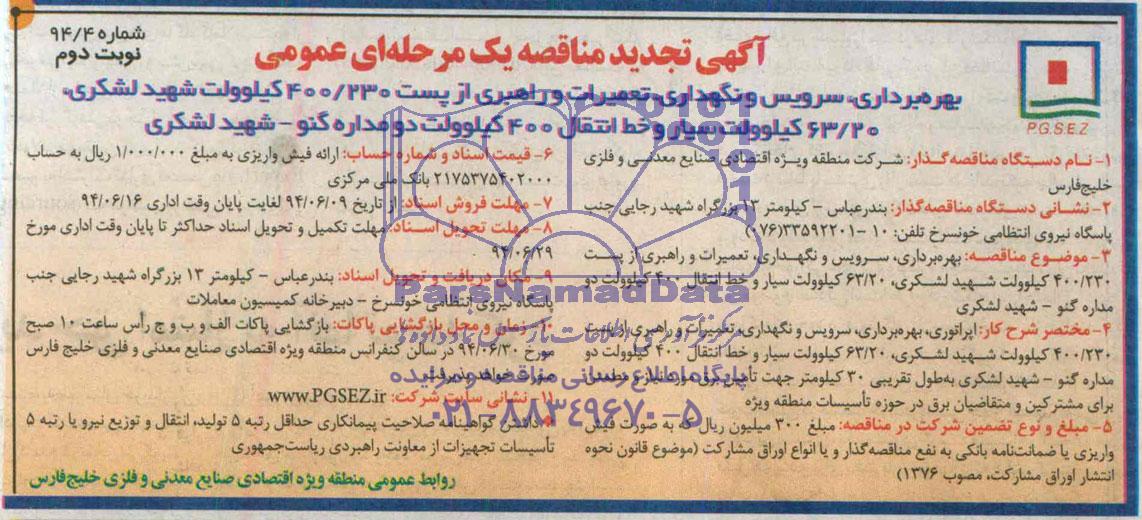 شماره ۹۴/۴
نوبت دوم
آگهی تجدید مناقصه یک مرحله‌ای عمومی
بهره‌برداری، سرویس و نگهداری، تعمیرات و راهبری از پست ۴۰۰/۲۳۰ کیلوولت شهید لشکری،
۶۳/۲۰ کیلوولت سیار و خط انتقال ۴۰۰ کیلوولت دو مداره گنو - شهید لشکری
P.G.S.E.Z
۱- نام دستگاه مناقصه‌گذار: شرکت منطقه ویژه اقتصادی صنایع معدنی و فلزی
خلیج‌فارس
۲- نشانی دستگاه مناقصه‌گذار: بندرعباس - کیلومتر ۱۳ بزرگراه شهید رجایی جنب
پاسگاه نیروی انتظامی خونسرخ تلفن: ۱۰ -۳۳۵۹۲۲۰۱(۰۷۶)
۳- موضوع مناقصه: بهره‌برداری، سرویس و نگهداری، تعمیرات و راهبری از پست
۴۰۰/۲۳۰ کیلوولت شهید لشکری، ۶۳/۲۰ کیلوولت سیار و خط انتقال ۴۰۰ کیلوولت دو
مداره گنو - شهید لشکری
۴- مختصر شرح کار: اپراتوری، بهره‌برداری، سرویس و نگهداری، تعمیرات و راهبری از پست
۴۰۰/۲۳۰ کیلوولت شهید لشکری، ۶۳/۲۰ کیلوولت سیار و خط انتقال ۴۰۰ کیلوولت دو
مداره گنو - شهید لشکری به‌طول تقریبی ۳۰ کیلومتر جهت تأمین برق مورد نیاز و مطمئن
برای مشترکین و متقاضیان برق در حوزه تأسیسات منطقه ویژه
۵- مبلغ و نوع تضمین شرکت در مناقصه: مبلغ ۳۰۰ میلیون ریال که به صورت فیش
واریزی یا ضمانت‌نامه بانکی به نفع مناقصه‌گذار و یا انواع اوراق مشارکت (موضوع قانون نحوه
انتشار اوراق مشارکت، مصوب ۱۳۷۶)
۶- قیمت اسناد و شماره حساب: ارائه فیش واریزی به مبلغ ۱/۰۰۰/۰۰۰ ریال به حساب
۲۱۷۵۳۷۵۴۰۲۰۰۰ بانک ملی مرکزی
۷- مهلت فروش اسناد: از تاریخ ۹۴/۰۶/۰۹ لغایت پایان وقت اداری ۹۴/۰۶/۱۶
۸- مهلت تحویل اسناد: مهلت تکمیل و تحویل اسناد حداکثر تا پایان وقت اداری مورخ
۹۴/۰۶/۲۹
۹- مکان دریافت و تحویل اسناد: بندرعباس - کیلومتر ۱۳ بزرگراه شهید رجایی جنب
پاسگاه نیروی انتظامی خونسرخ - دبیرخانه کمیسیون معاملات
۱۰- زمان و محل بازگشایی پاکات: بازگشایی پاکات الف و ب و ج رأس ساعت ۱۰ صبح
مورخ ۹۴/۰۶/۳۰ در سالن کنفرانس منطقه ویژه اقتصادی صنایع معدنی و فلزی خلیج فارس
صورت خواهد پذیرفت.
۱۱- نشانی سایت شرکت: www.PGSEZ.ir
* داشتن گواهینامه صلاحیت پیمانکاری حداقل رتبه ۵ تولید، انتقال و توزیع نیرو یا رتبه ۵
تأسیسات تجهیزات از معاونت راهبردی ریاست‌جمهوری
روابط عمومی منطقه ویژه اقتصادی صنایع معدنی و فلزی خلیج‌فارس
ParsNamadData
مرکز فرآوری اطلاعات پارس نماد داده‌ها
پایگاه اطلاع رسانی مناقصه و مزایده
۰۲۱-۸۸۳۴۹۶۷۰-۵